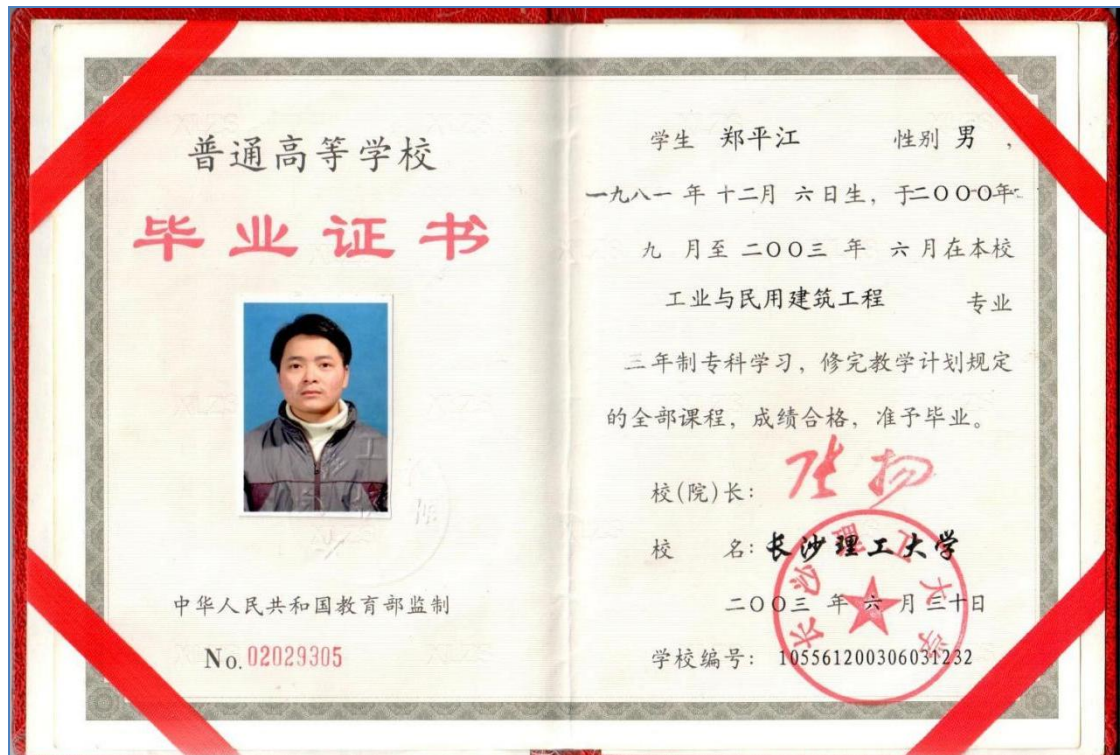 普通高等学校
毕业证书
中华人民共和国教育部监制
No. 02029305
学生 郑平江 性别 男 ,
一九八一 年 十二月 六日生, 于二〇〇〇年
九 月至 二〇〇三 年 六月在本校
工业与民用建筑工程 专业
三年制专科学习, 修完教学计划规定
的全部课程, 成绩合格, 准予毕业。
校(院)长:
校 名: 长沙理工大学
二〇〇三 年 六 月 三十日
学校编号: 105561200306031232
长沙理工大学